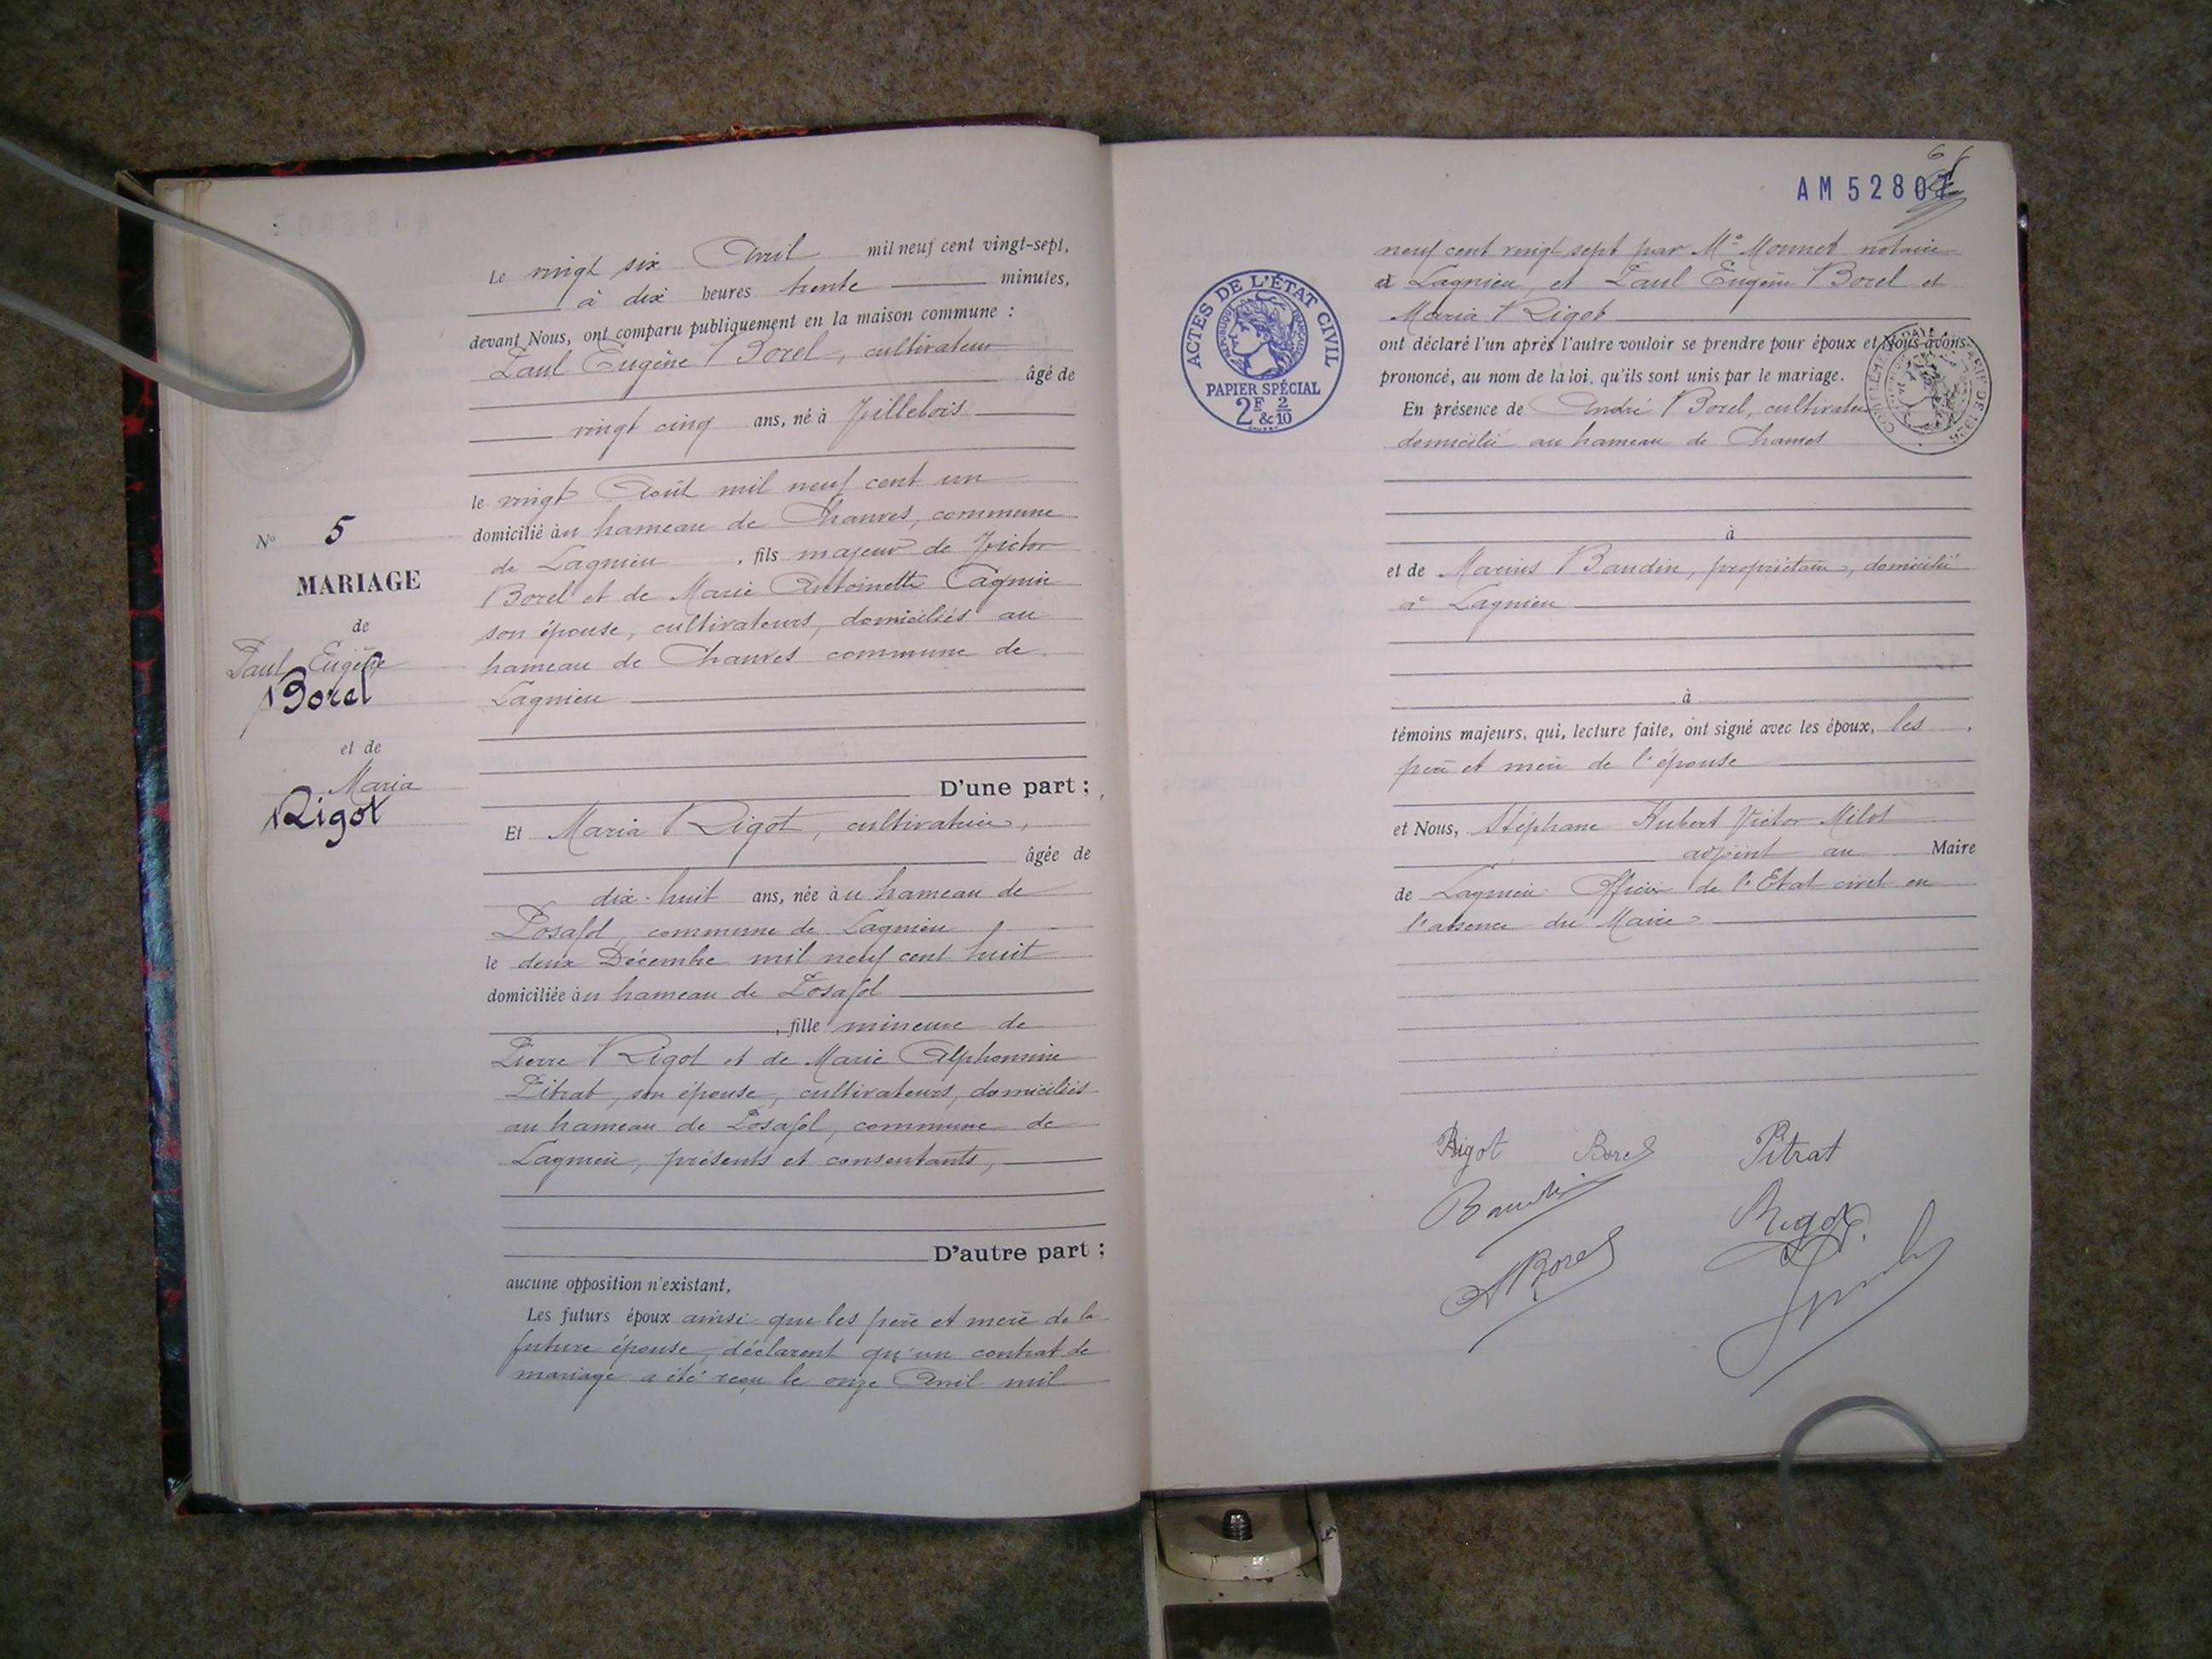 Le vingt six Avril mil neuf cent vingt-sept,
à dix heures trente minutes,
devant Nous, ont comparu publiquement en la maison commune :
Paul Eugène Borel, cultivateur
âgé de
vingt cinq ans, né à Villebois
le vingt Août mil neuf cent un
domicilié au hameau de Chanves, commune
de Lagnieu, fils majeur de Victor
Borel et de Marie Antoinette Cagnin
son épouse, cultivateurs, domiciliés au
hameau de Chanves commune de
Lagnieu
N° 5
MARIAGE
de
Paul Eugène
Borel
et de
Maria
Rigot
D'une part ;
Et Maria Rigot, cultivatrice,
âgée de
dix-huit ans, née au hameau de
Posafol, commune de Lagnieu
le deux Décembre mil neuf cent huit
domiciliée au hameau de Posafol
, fille mineure de
Pierre Rigot et de Marie Alphonsine
Pitrat, son épouse, cultivateurs, domiciliés
au hameau de Posafol, commune de
Lagnieu, présents et consentants,
D'autre part ;
aucune opposition n'existant,
Les futurs époux ainsi que les père et mère de la
future épouse, déclarent qu'un contrat de
mariage a été reçu le onze Avril mil
AM 52807
neuf cent vingt sept par Me Monnet notaire
à Lagnieu, et Paul Eugène Borel et
Maria Rigot
ACTES DE L'ÉTAT CIVIL
RÉPUBLIQUE FRANÇAISE
PAPIER SPÉCIAL
2F & 2/10
ont déclaré l'un après l'autre vouloir se prendre pour époux et Nous avons
prononcé, au nom de la loi, qu'ils sont unis par le mariage.
En présence de André Borel, cultivateur
domicilié au hameau de Chanves
à
et de Marius Baudin, propriétaire, domicilié
à Lagnieu
à
témoins majeurs, qui, lecture faite, ont signé avec les époux, les
père et mère de l'épouse
et Nous, Stéphane Hubert Victor Milot
adjoint au Maire
de Lagnieu Officier de l'Etat civil en
l'absence du Maire
Rigot Borel Pitrat
Baudin Rigot
A Borel